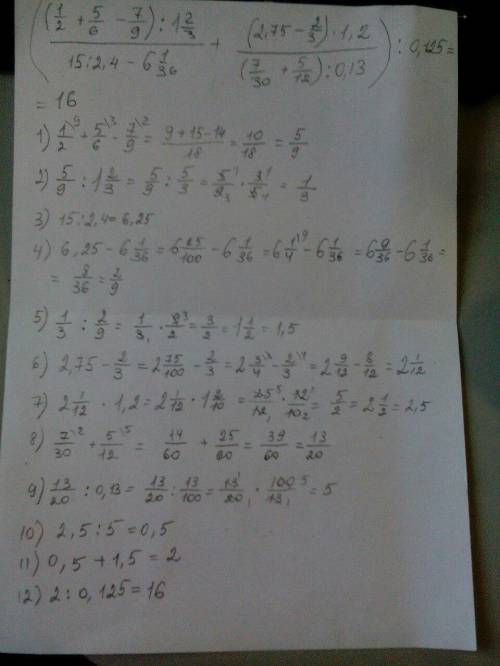 (((1/2 + 5/6 - 7/9) : 1 2/3)/(15:2,4 - 6 1/36) + ((2,75 - 2/3) · 1,2)/((7/30 + 5/12) : 0,13)) : 0,125 =
= 16
1) 1\9/2 + 5\3/6 - 7\2/9 = (9+15-14)/18 = 10/18 = 5/9
2) 5/9 : 1 2/3 = 5/9 : 5/3 = 5 1/9 3 · 3 1/5 1 = 1/3
3) 15:2,4=6,25
4) 6,25 - 6 1/36 = 6 25/100 - 6 1/36 = 6 1\9/4 - 6 1/36 = 6 9/36 - 6 1/36 =
= 8/36 = 2/9
5) 1/3 : 2/9 = 1/3 1 · 9 3/2 = 3/2 = 1 1/2 = 1,5
6) 2,75 - 2/3 = 2 75/100 - 2/3 = 2 3\3/4 - 2\4/3 = 2 9/12 - 8/12 = 2 1/12
7) 2 1/12 · 1,2 = 2 1/12 · 1 2/10 = 25 5/12 1 · 12 1/10 2 = 5/2 = 2 1/2 = 2,5
8) 7\2/30 + 5\5/12 = 14/60 + 25/60 = 39/60 = 13/20
9) 13/20 : 0,13 = 13/20 : 13/100 = 13 1/20 1 · 100 5/13 1 = 5
10) 2,5 : 5 = 0,5
11) 0,5 + 1,5 = 2
12) 2 : 0,125 = 16